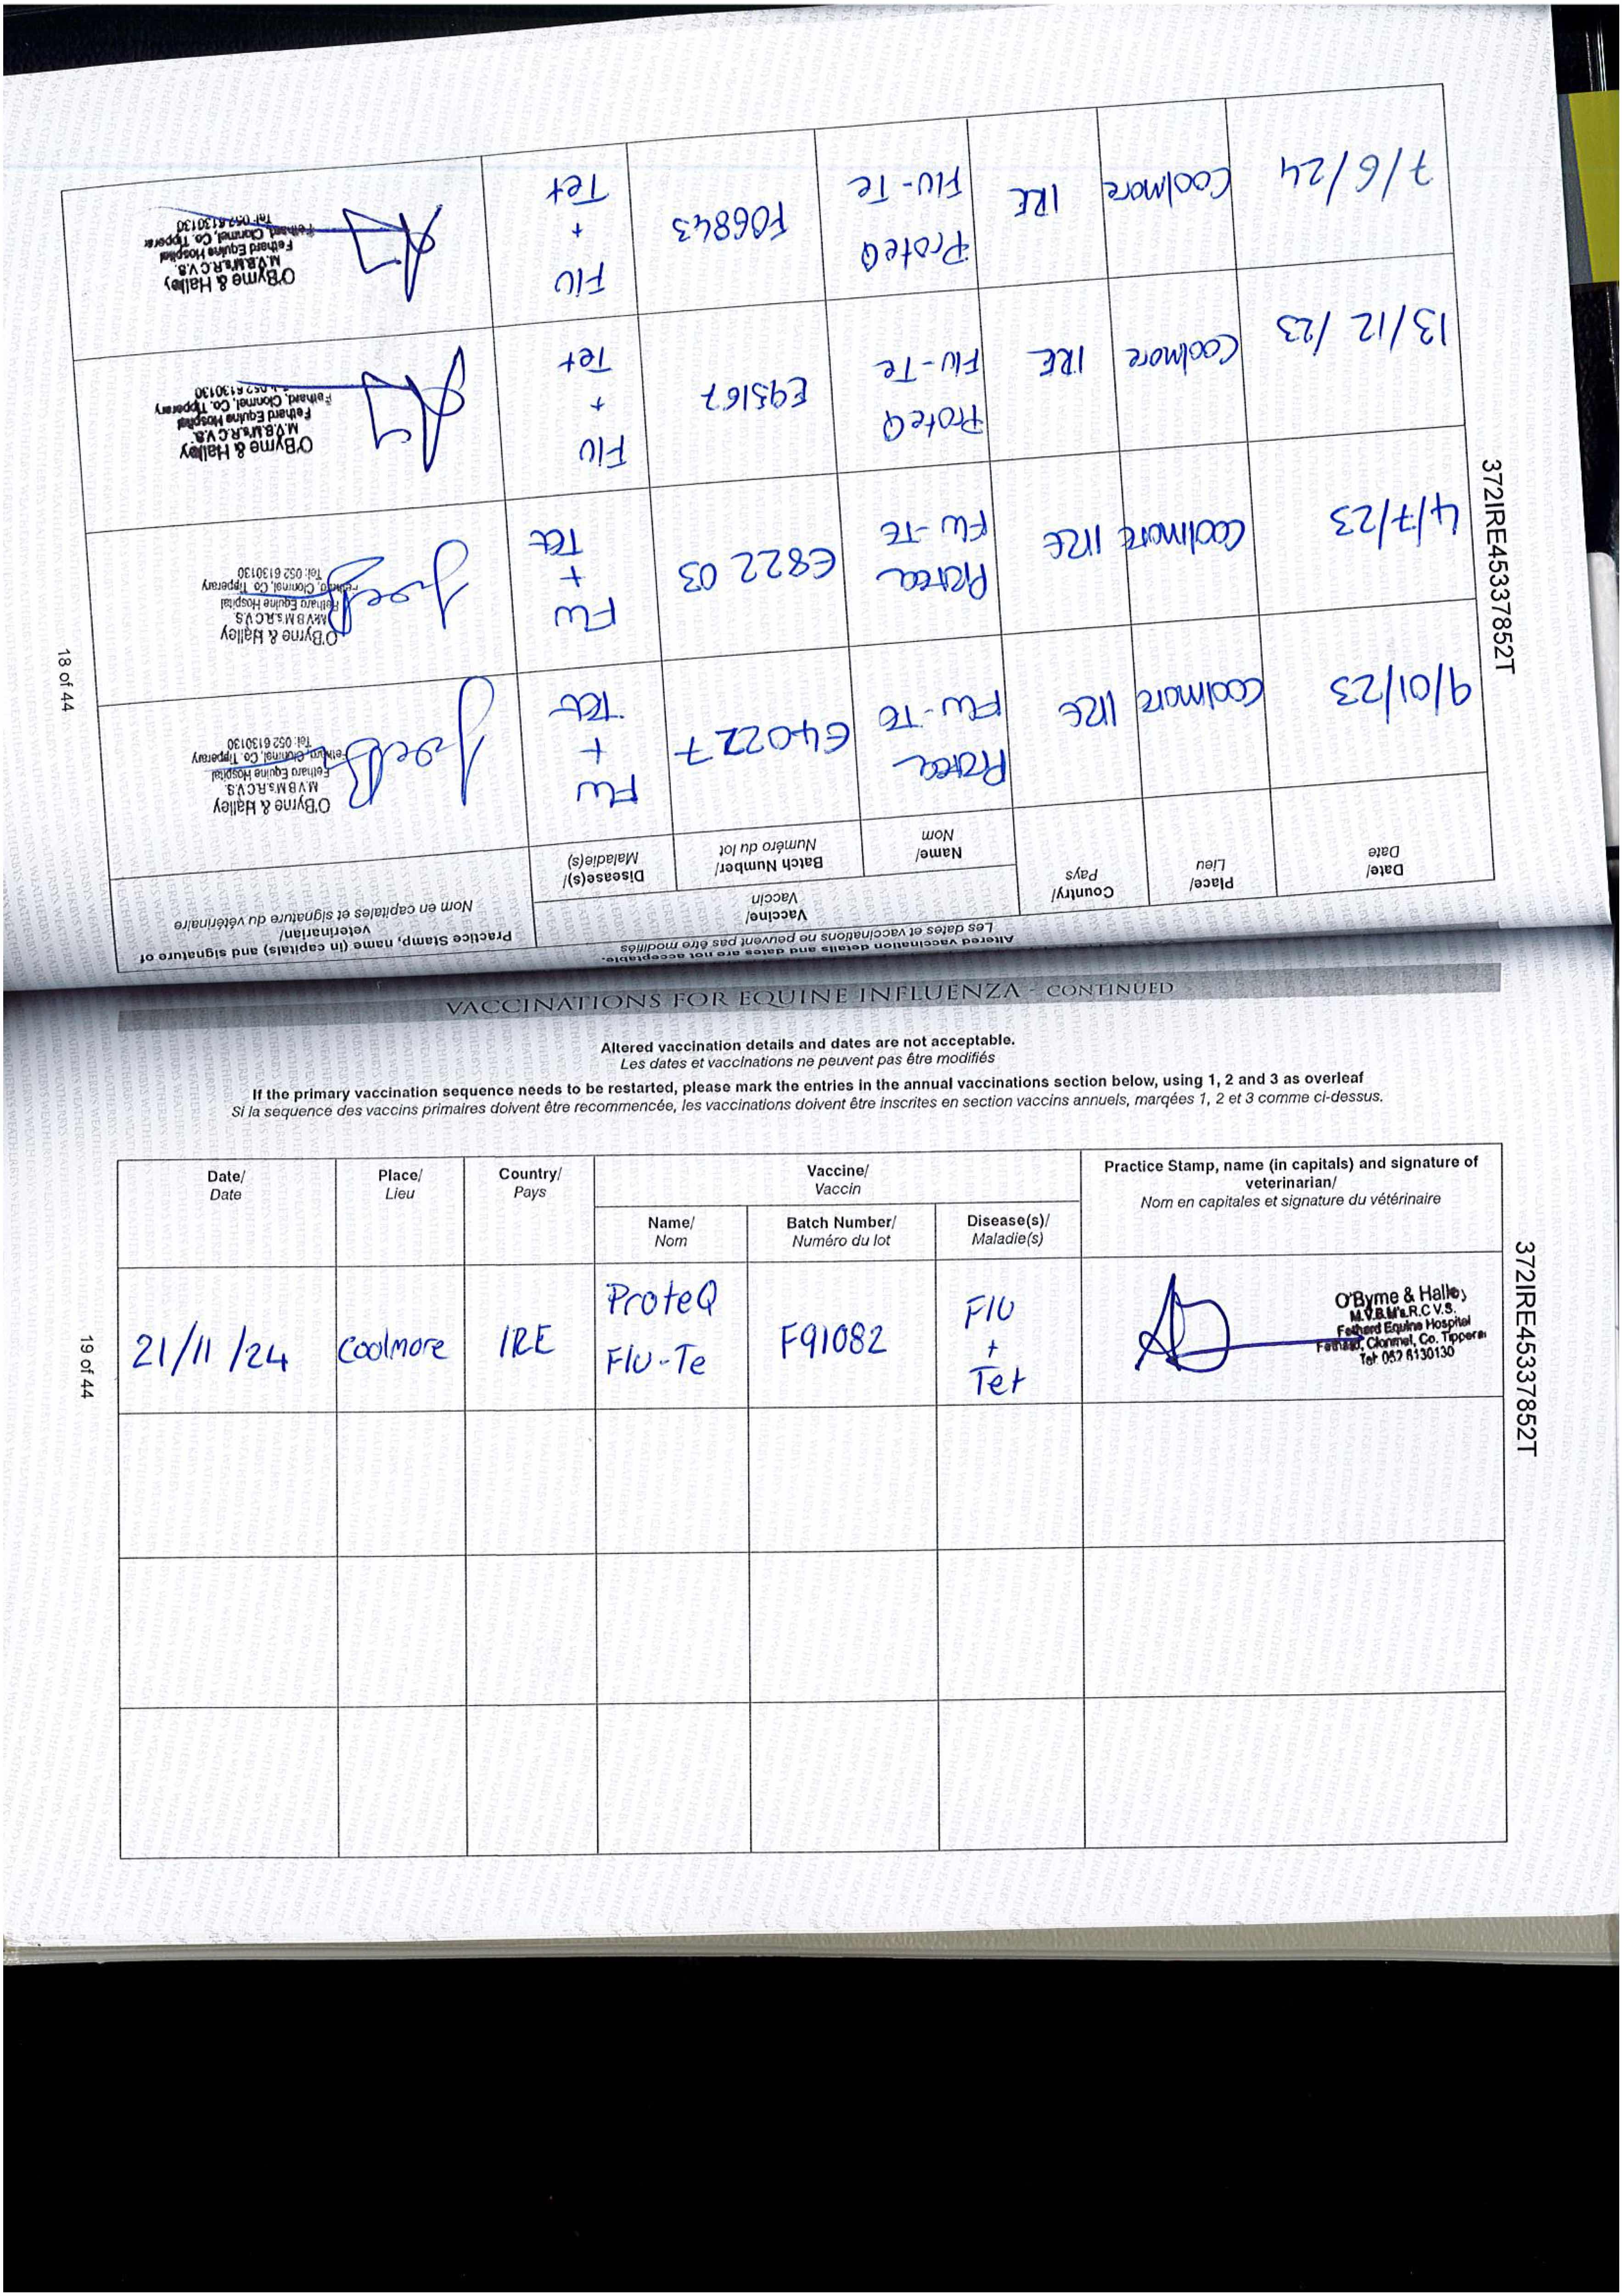 Altered vaccination details and dates are not acceptable.
Les dates et vaccinations ne peuvent pas être modifiés
Date/
Date
Place/
Lieu
Country/
Pays
Vaccine/
Vaccin
Name/
Nom
Batch Number/
Numéro du lot
Disease(s)/
Maladie(s)
Practice Stamp, name (in capitals) and signature of
veterinarian/
Nom en capitales et signature du vétérinaire
9/01/23
Coolmore
IRE
Proteq
Flu-Te
E40227
Flu
+
Tet
O'Byrne & Halley
M.V.B M's.R.C.V.S.
Fethard Equine Hospital
Fethard, Clonmel, Co. Tipperary
Tel: 052 6130130
4/7/23
Coolmore
IRE
Proteq
Flu-Te
E82203
Flu
+
Tet
O'Byrne & Halley
M.V.B M's.R.C.V.S.
Fethard Equine Hospital
Fethard, Clonmel, Co. Tipperary
Tel: 052 6130130
13/12/23
Coolmore
IRE
ProteQ
Flu-Te
E95167
Flu
+
Tet
O'Byrne & Halley
M.V.B.M's.R.C.V.S.
Fethard Equine Hospital
Fethard, Clonmel, Co. Tipperary
052 6130130
7/6/24
Coolmore
IRE
ProteQ
Flu-Te
F06843
Flu
+
Tet
O'Byrne & Halley
M.V.B.M's.R.C.V.S.
Fethard Equine Hospital
Fethard, Clonmel, Co. Tipperar
Tel: 052 6130130
372IRE45337852T
18 of 44
VACCINATIONS FOR EQUINE INFLUENZA - CONTINUED
Altered vaccination details and dates are not acceptable.
Les dates et vaccinations ne peuvent pas être modifiés
If the primary vaccination sequence needs to be restarted, please mark the entries in the annual vaccinations section below, using 1, 2 and 3 as overleaf
Si la sequence des vaccins primaires doivent être recommencée, les vaccinations doivent être inscrites en section vaccins annuels, marqées 1, 2 et 3 comme ci-dessus.
Date/
Date
Place/
Lieu
Country/
Pays
Vaccine/
Vaccin
Name/
Nom
Batch Number/
Numéro du lot
Disease(s)/
Maladie(s)
Practice Stamp, name (in capitals) and signature of
veterinarian/
Nom en capitales et signature du vétérinaire
21/11/24
Coolmore
IRE
ProteQ
Flu-Te
F91082
Flu
+
Tet
O'Byrne & Halley
M.V.B.M's.R.C V.S.
Fethard Equine Hospital
Fethard, Clonmel, Co. Tipperar
Tel: 052 6130130
372IRE45337852T
19 of 44